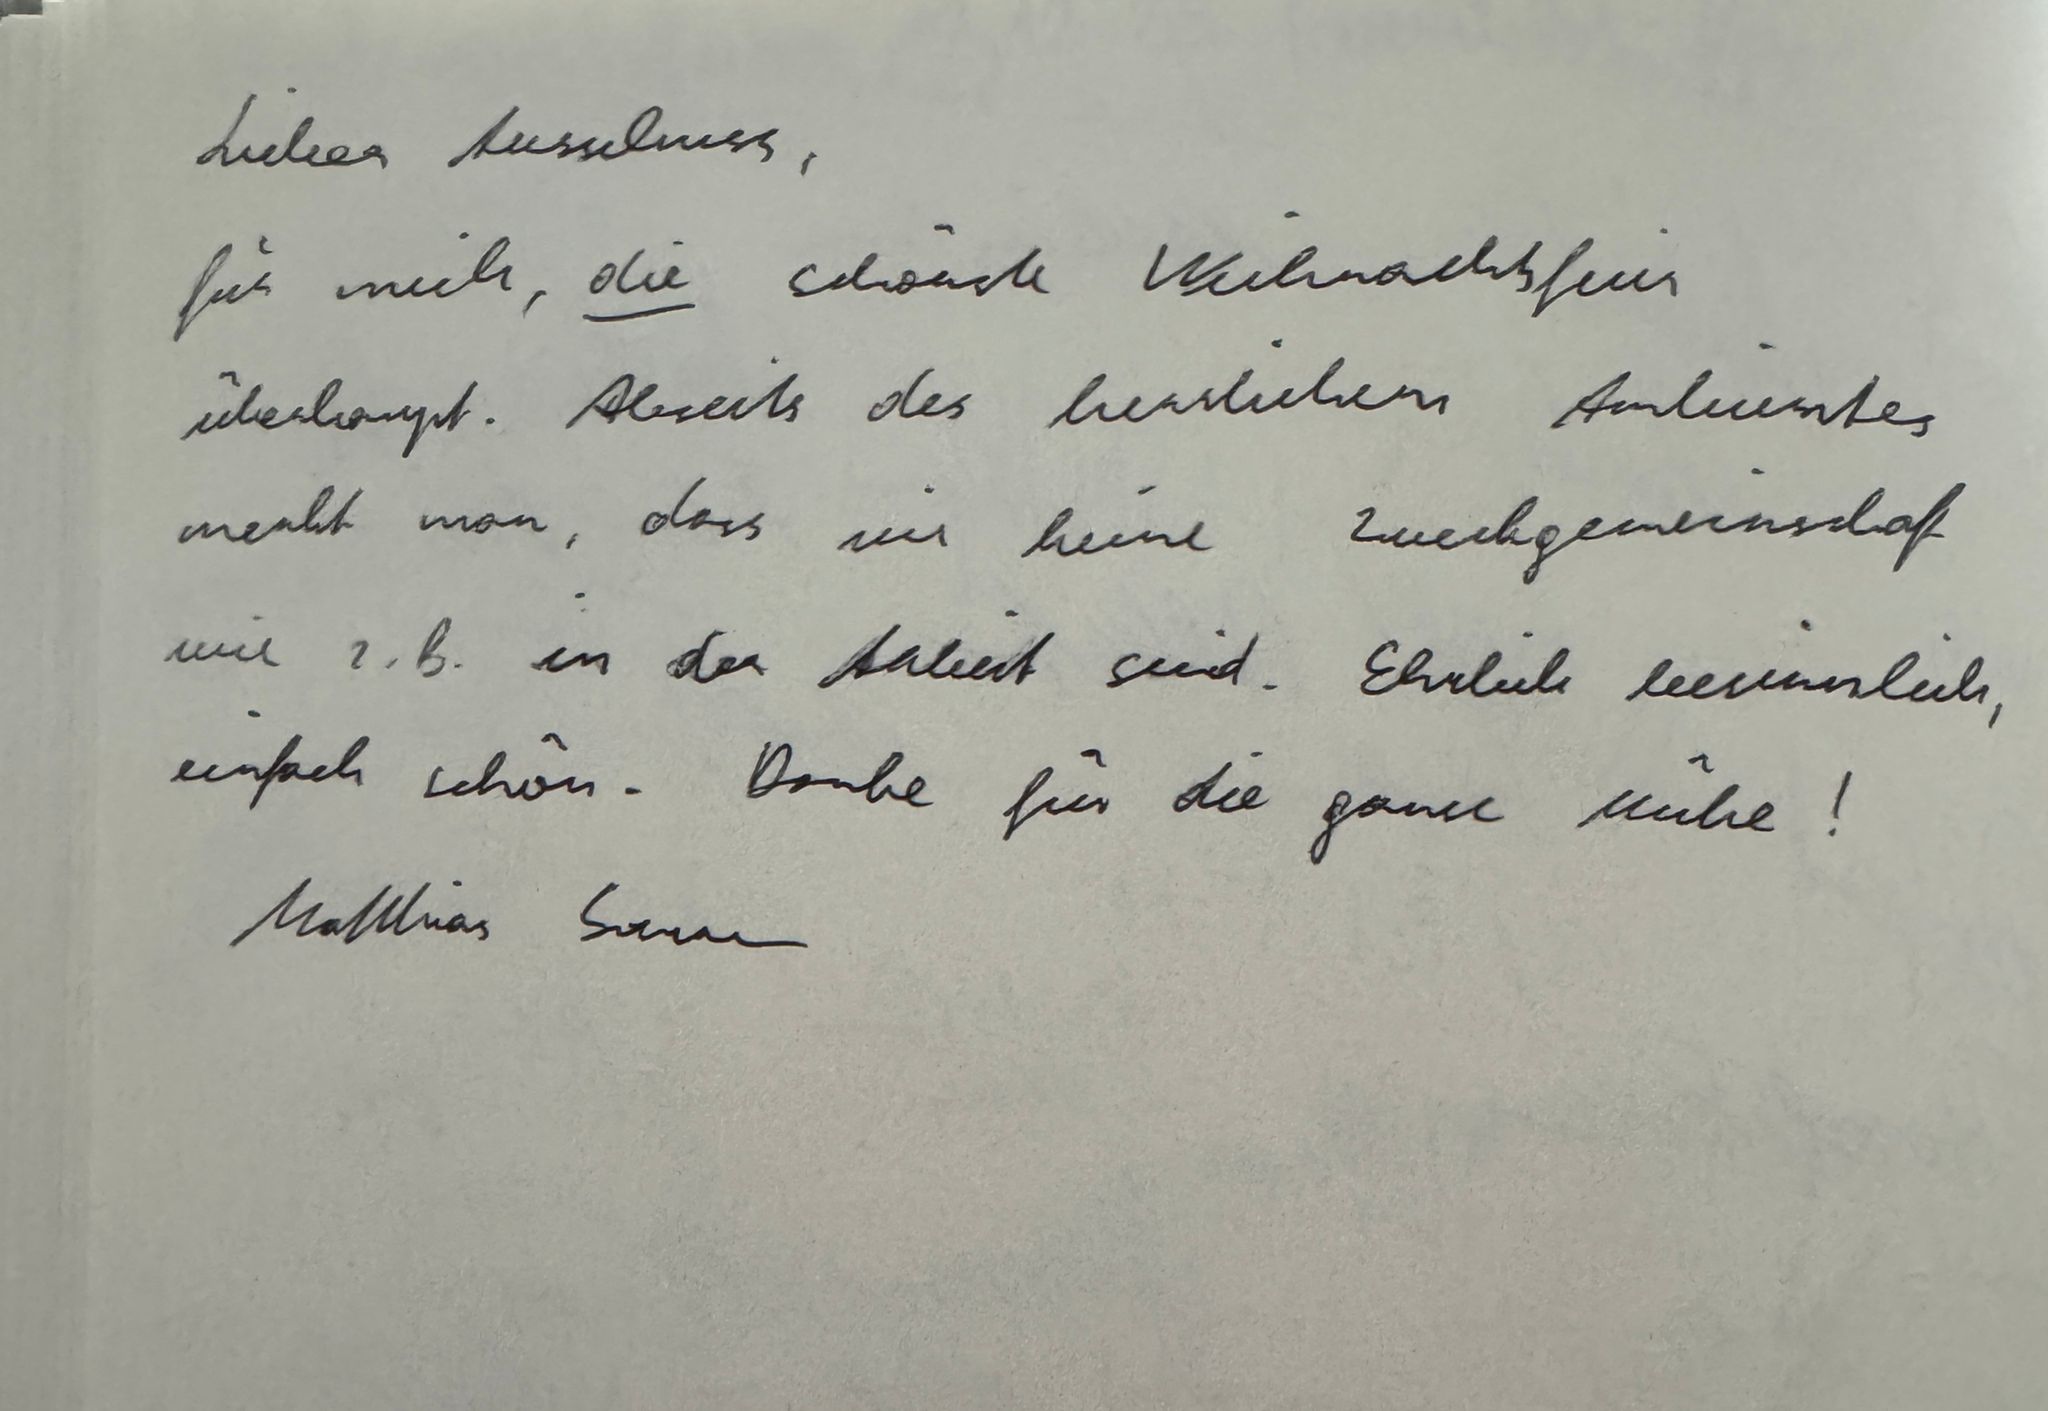 Lieber Ausschuss,
für mich, die schönste Weihnachtsfeier
überhaupt. Abseits des herrlichen Ambientes
merkt man, dass wir keine Zweckgemeinschaft
wie z.B. in der Arbeit sind. Ehrlich,
einfach schön. Danke für die ganze Mühe!
Matthias